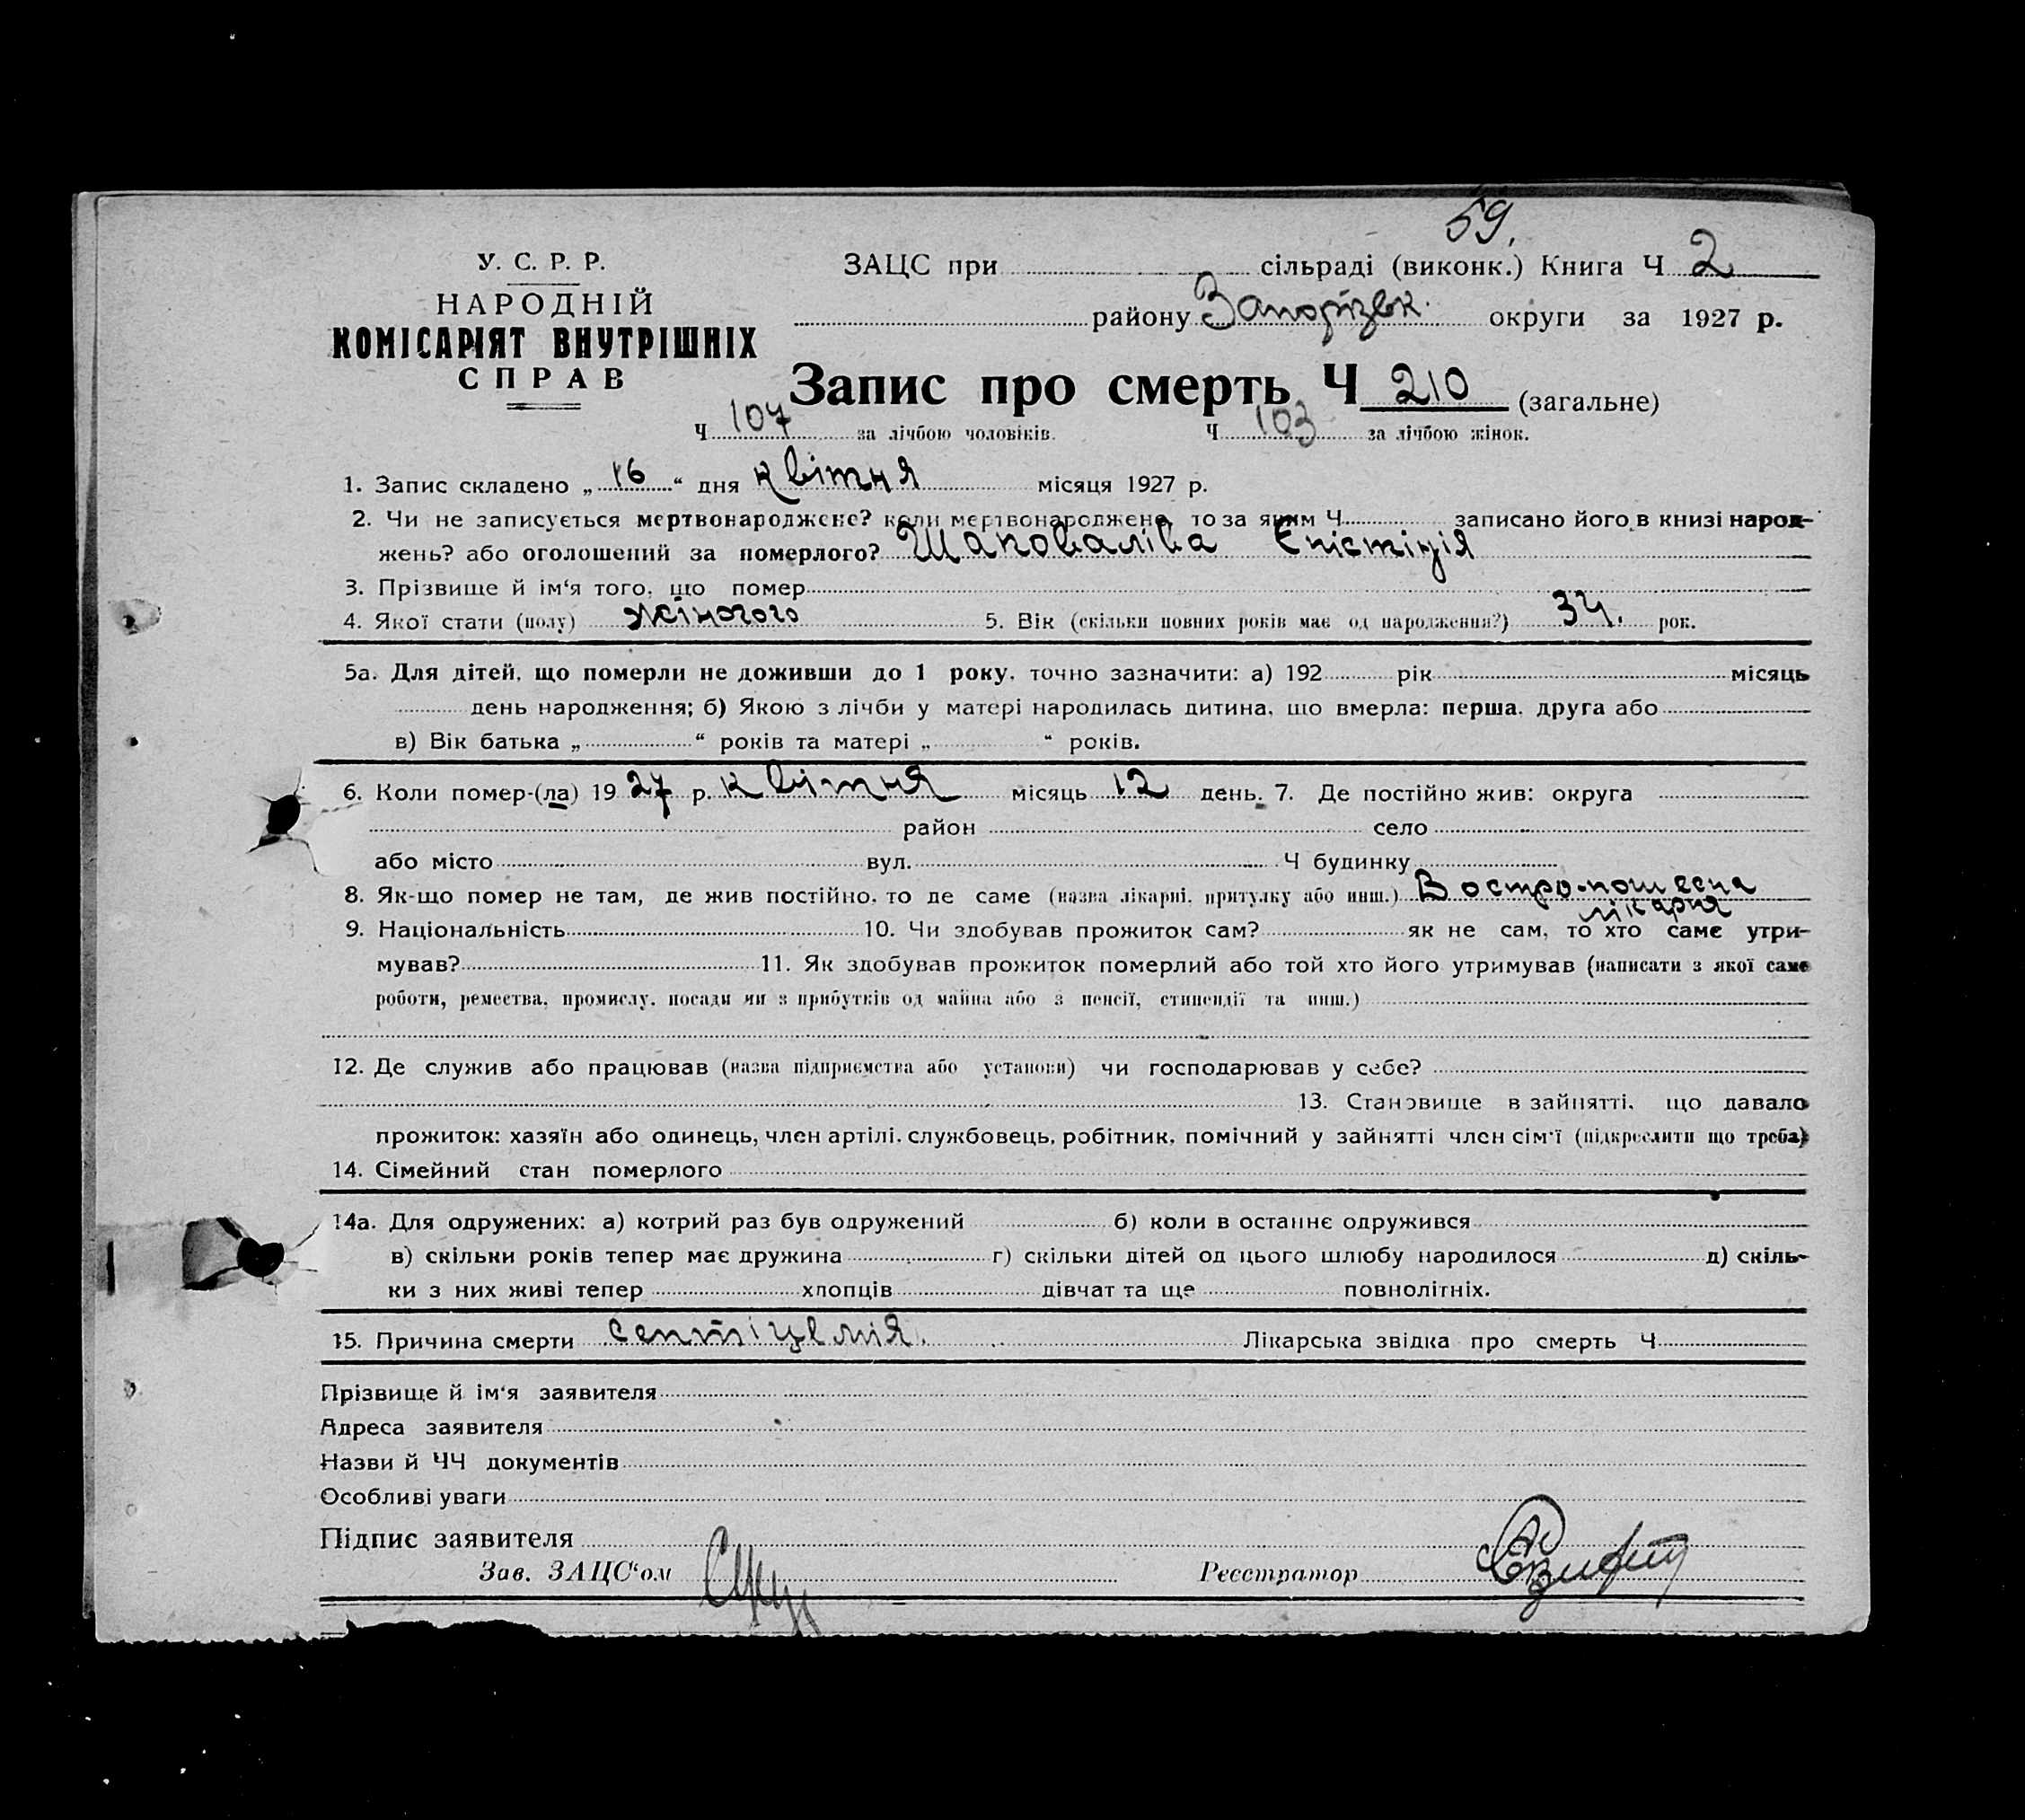 59.
У. С. Р. Р.
НАРОДНІЙ
КОМІСАРІЯТ ВНУТРІШНІХ
СПРАВ
ЗАЦС при сільраді (виконк.) Книга Ч 2
району Запорізьк. округи за 1927 р.
Запис про смерть Ч 210 (загальне)
Ч 107 за лічбою чоловіків. Ч 103 за лічбою жінок.
1. Запис складено „16“ дня квітня місяця 1927 р.
2. Чи не записується мертвонароджене? коли мертвонароджене, то за яким Ч записано його в книзі народ-
жень? або оголошений за померлого? Шаповалівa Епістімія
3. Прізвище й ім‘я того, що помер
4. Якої стати (полу) жіночого 5. Вік (скільки повних років має од народження?) 34. рок.
5а. Для дітей, що померли не доживши до 1 року, точно зазначити: а) 192 рік місяць
день народження; б) Якою з лічби у матері народилась дитина, що вмерла: перша, друга або
в) Вік батька „ “ років та матері „ “ років.
6. Коли помер-(ла) 1927 р. квітня місяць 12 день. 7. Де постійно жив: округа
район село
або місто вул. Ч будинку
8. Як-що помер не там, де жив постійно, то де саме (назва лікарні, притулку або инш.) Востро-пошесна
лікарня
9. Національність 10. Чи здобував прожиток сам? як не сам, то хто саме утри-
мував? 11. Як здобував прожиток померлий або той хто його утримував (написати з якої саме
роботи, ремества, промислу, посади чи з прибутків од майна або з пенсії, стипендії та инш.)
12. Де служив або працював (назва підприємства або установи) чи господарював у себе?
13. Становище в зайнятті, що давало
прожиток: хазяїн або одинець, член артілі, службовець, робітник, помічний у зайнятті член сім‘ї (підкреслити що треба)
14. Сімейний стан померлого
14а. Для одружених: а) котрий раз був одружений б) коли в останнє одружився
в) скільки років тепер має дружина г) скільки дітей од цього шлюбу народилося д) скіль-
ки з них живі тепер хлопців дівчат та ще повнолітніх.
15. Причина смерти септіцемія. Лікарська звідка про смерть Ч
Прізвище й ім‘я заявителя
Адреса заявителя
Назви й ЧЧ документів
Особливі уваги
Підпис заявителя
Зав. ЗАЦС‘ом Реєстратор